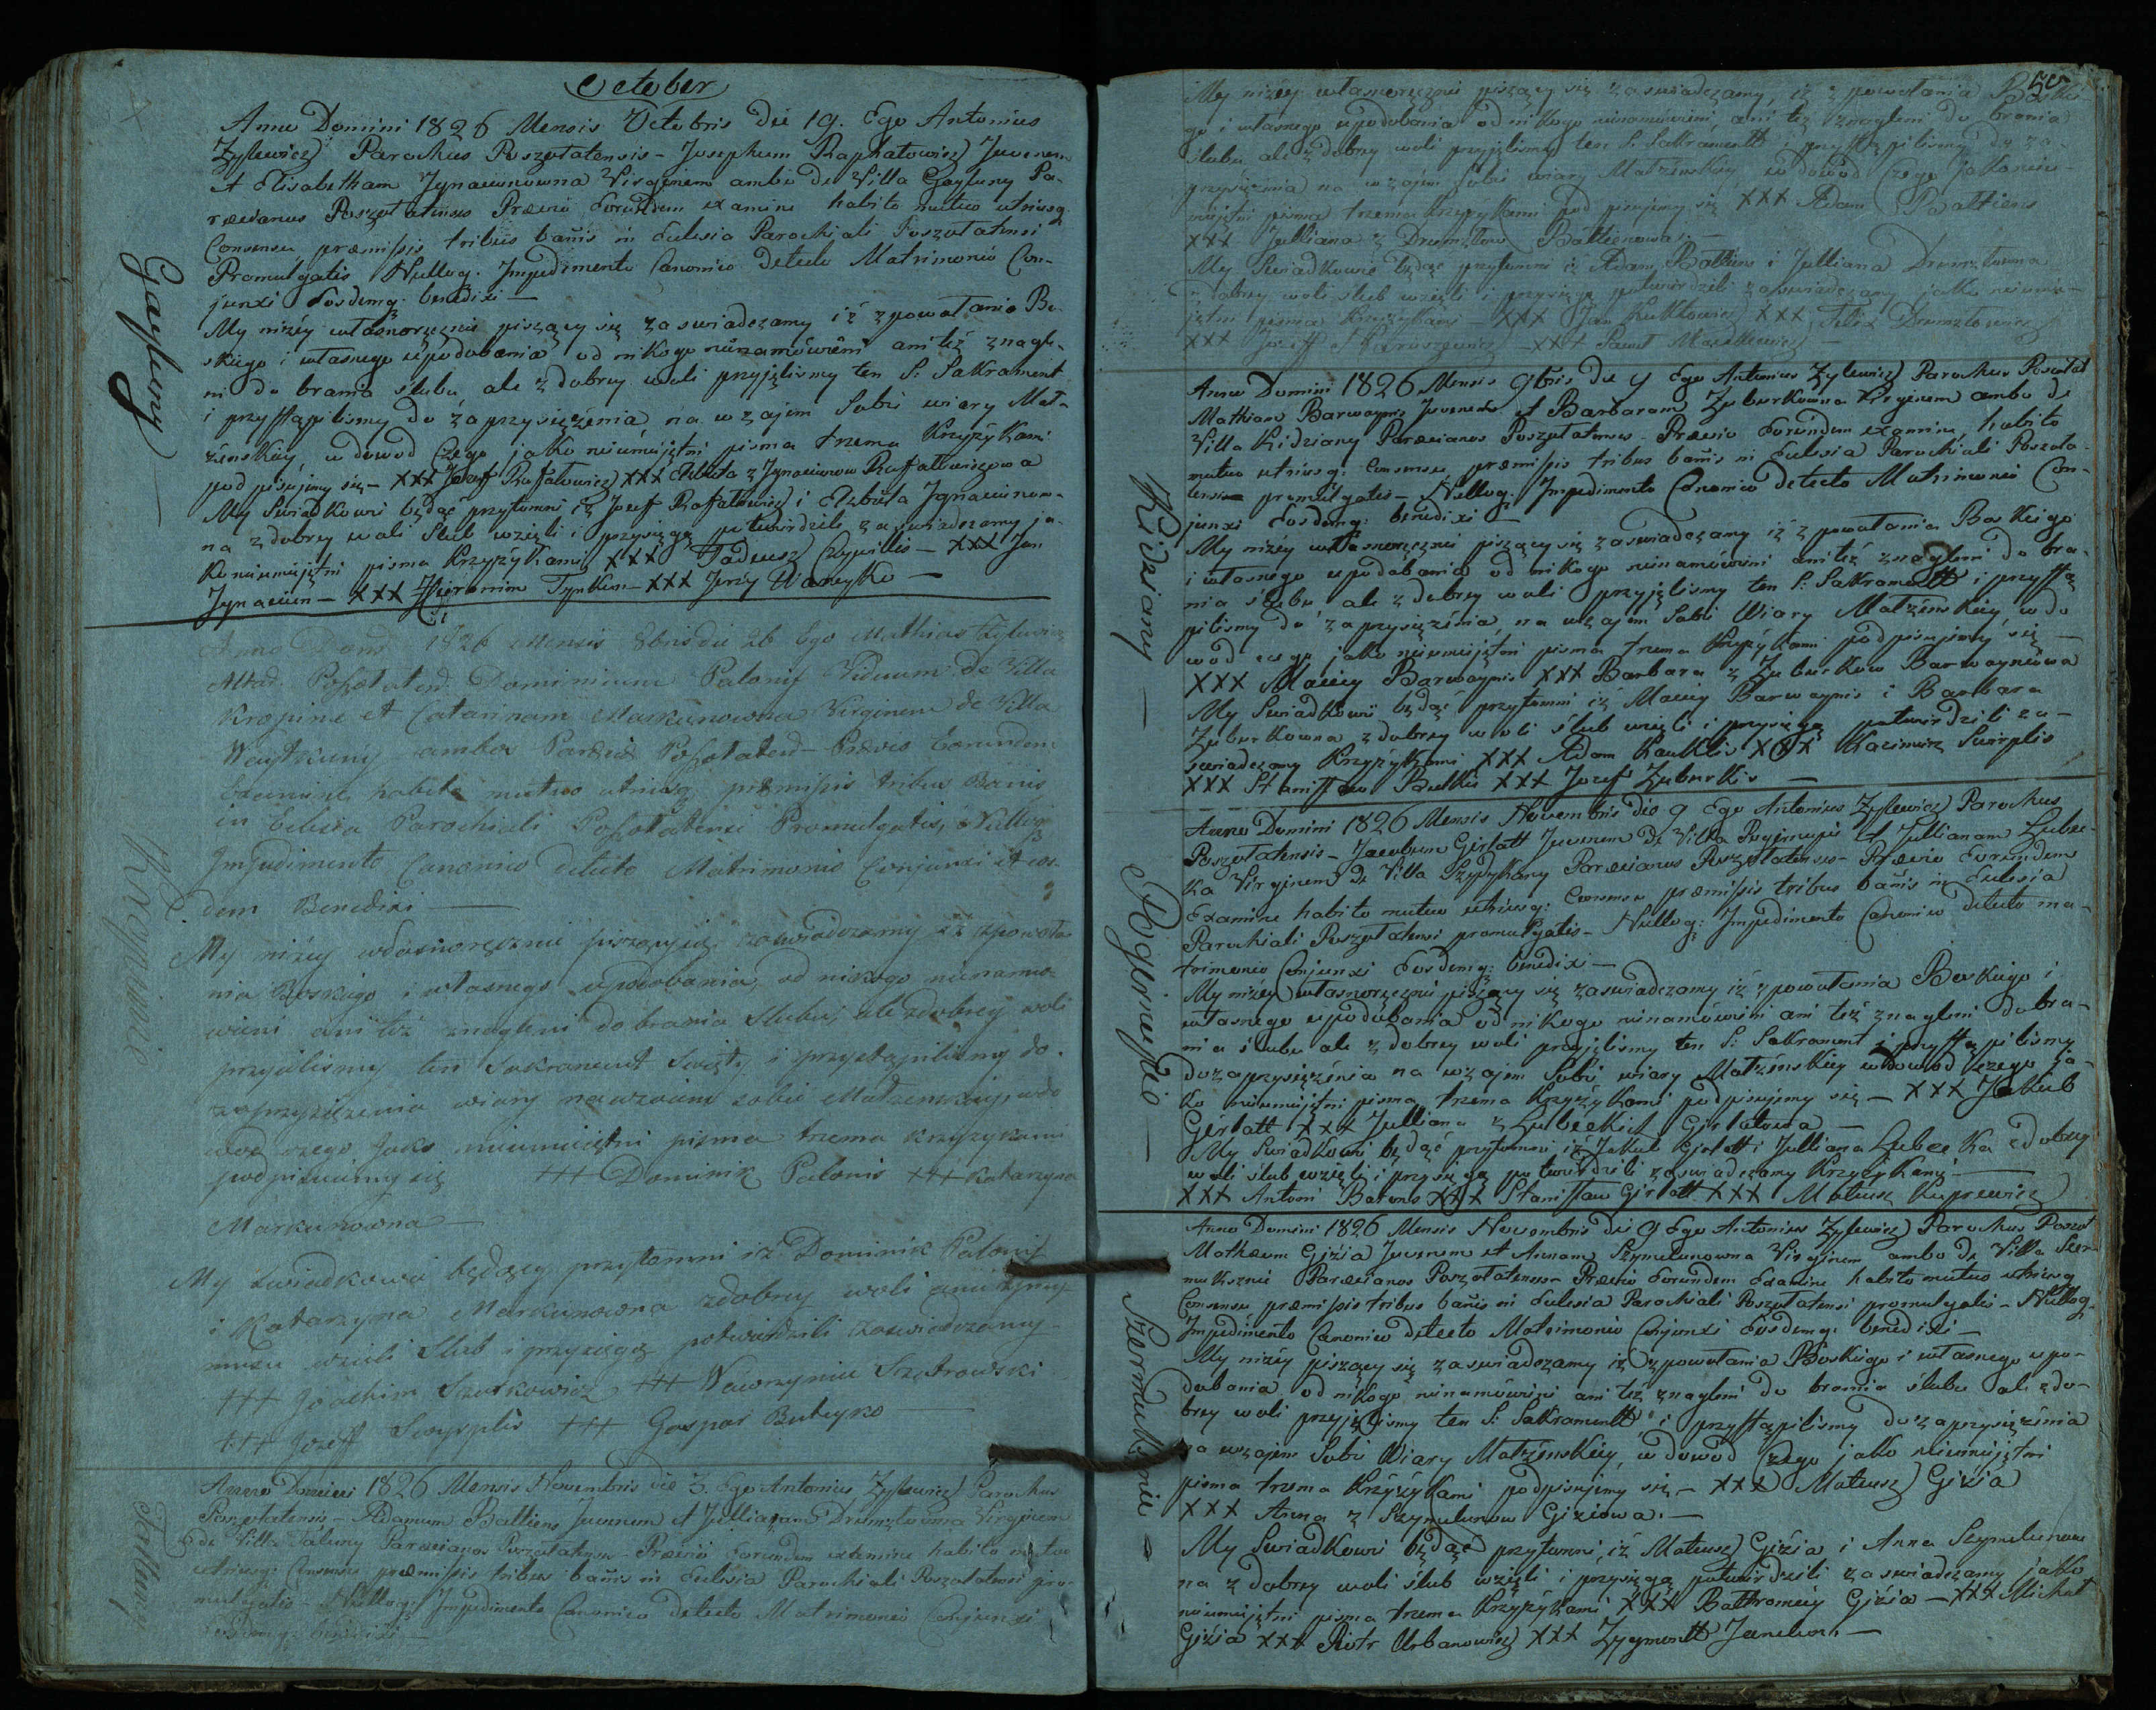 October
Anno Domini 1826 Mensis Octobris die 19. Ego Antonius
Zylewicz Parochus Poszołatensis - Josephum Raphałowicz Juvenem
et Elisabetham Jgnacunowna Virginem ambo de Villa Gayluny Pa-
rœcianus Poszołatenses Prævio Eorundem examine habito mutuo utriusq
Consensu præmissis tribus bañis in Eulesia Parochiali Poszołatensi
Promulgatis Nullog. Jmpedimento Canonico detecto Matrimonio Con-
junxi Eosdemq. benedixi —
My niżey własnorzęcznie piszący się zaswiadczamy iż z powołania Bo-
skiego i własnego upodobania od nikogo nienamówieni ani też znagle-
ni do brania slubu, ale z dobrey woli przyjęlismy ten S: Sakrament
i przystąpilismy do zaprzysiężenia na wzajem Sobie wiary Mał-
żenskiey, w dowod czego jako nieumiejętni pisma trzema Krzyżykami
podpisujemy się - XXX Jozeff Rafałowicz XXX Elżbieta z Jgnacunow Raffałowiczowa
My Swiadkowie będąc przytomni iż Jozef Rafałowicz i Elżbieta Jgnacunow-
na z dobrey woli Slub wzięli i przysięgę potwierdzili, zaswiadczamy ja-
ko nieumiejętni pisma Krzyżykami XXX Tadeusz Czywillis - XXX Jan
Jgnacun - XXX Hieronim Tynkun - XXX Jerzy
Gayluny —
Anno Domi 1826 Mensis 8bris die 26 Ego Mathias Zylewicz
Altar. Poszołaten. Dominicum Palonis Viduum de Villa
Kropine et Catarinam Markunowna Virginem de Villa
ambos Parœcia Poszołaten - Prævio Eorundem
Examine habito mutuo utriusq præmissis tribus Banis
in Eclesia Parochiali Poszołatensi Promulgatis, Nulloq
Jmpedimento Canonico detecto Matrimonio Conjunxi et eos-
dem Benedixi —
My niżey własnoręcznie piszący się zaswiadczamy iż z powoła-
nia Boskiego i własnego upodobania, od nikogo nienamó-
wieni ani też znagleni do brania Slubu, ale z dobrey woli
przyielismy ten Sakrament Swięty i przystąpilismy do
zaprzysięzenia wiary nawzaiem sobie Małzenskiey, w do
wod czego jako nieumieiętni pisma trzema krzyzykami
podpisuiemy się +++ Dominik Palonis +++ Katarzyna
Markunowna —
My swiadkowie będący przytomni iż Dominik Palonis
i Katarzyna Markunowna z dobrey woli
musu wzieli Slub i przysięgę potwierdzili zaswiadczamy
+++ Joachim Szutkowicz +++ Wawrzyniec
+++ Jozeff Swyrplis +++ Gaspar Buteyko
Kropinie
Anno Domini 1826 Mensis Novembris die 3. Ego Antonius Zylewicz Parochus
Poszołatensis - Adamum Baltiens Juvenem et Jullianam Drumztowna Virginem
de Villa Taluny Parœcianos Poszołatenses - Prævio Eorundem examine habito mutuo
utriusq: Consensu præmissis tribus bañis in Eulesia Parochiali Poszołatensi pro-
mulgatis - Nullog: Jmpedimento Canonico detecto Matrimonio Conjunxi
Eosdemq: benedixi —
My niżey własnoręcznie piszący się zaswiadczamy, iż z powołania Boskie-
go i własnego upodobania od nikogo nienamówieni, ani też znagleni do brania
slubu, ale z dobrey woli przyjęlismy ten S. Sakramentt i przystąpilismy do za-
przysiężenia na wzajem Sobie wiary Małżenskiey, w dowód czego jako nieu-
miejętni pisma trzema krzyżykami podpisujemy się XXX Adam Baltiens
XXX Julliana z Drumztow Baltienowa. —
My Swiadkowie będąc przytomni iż Adam Baltiens i Julliana Drumztowna
z dobrey woli slub wzięli i przysięgę potwierdzili zaswiadczamy jako nieumie-
jętni pisma Krzyżykami - XXX Jan Kukłowicz XXX Felix Drumztowicz
XXX Jozeff XXX Paweł —
Anno Domini 1826 Mensis 9bris die 9 Ego Antonius Zylewicz Parochus Poszołat
Mathiam Barwaynis Juvenem et Barbaram Zuburkowna Virginem ambo de
Villa Kidziany Parœcianos Poszołatenses - Prævio Eorundem examine, habito
mutuo utriusq: Consensu præmissis tribus bañis in Eulesia Parochiali Poszoła-
tensi promulgatis - Nulloq: Jmpedimento Canonico detecto Matrimonio Con-
junxi Eosdemq: benedixi —
My niżey własnoręcznie piszący się zaswiadczamy iż z powołania Boskiego
i własnego upodobania od nikogo nienamówieni ani też znagleni do bra-
nia slubu ale z dobrey woli przyjęlismy ten S: Sakramentt i przystą
pilismy do zaprzysiężenia na wzajem Sobie Wiary Małżenskiey w do
wód czego jako nieumiejętni pisma trzema Krzyżykami podpisujemy się —
XXX Maciey Barwaynis XXX Barbara z Zuburkow Barwayniowa
My Swiadkowie będąc przytomni iż Maciey Barwaynis i Barbara
Zuburkowna z dobrey woli slub wzięli i przysięgę potwierdzili za-
swiadczamy Krzyżykami XXX Adam Rauktis XXX Kazimierz Swirplis
XXX Stanisław Butkis XXX Jozef Zuburkis —
Kidziany —
Anno Domini 1826 Mensis Novembris die 9 Ego Antonius Zylewicz Parochus
Poszołatensis - Jacobum Girłatt Juvenem de Villa Pogirnupie et Jullianam Lubec-
ka Virginem de Villa Szypykany Parœcianos Poszołatenses - Prævio Eorundem
Examine habito mutuo utriusq: Consensu præmissis tribus bañis in Eulesia
Parochiali Poszołatensi promulgatis - Nulloq: Jmpedimento Canonico detecto ma-
trimonio Conjunxi Eosdemq: benedixi —
My niżey własnoręcznie piszący się zaswiadczamy iż z powołania Boskiego i
własnego upodobania od nikogo nienamówieni ani też znagleni do bra-
nia slubu ale z dobrey woli przyjęlismy ten S: Sakrament i przystąpilismy
do zaprzysiężenia na wzajem Sobie wiary Małżenskiey w dowód czego ja-
ko nieumiejętni pisma trzema Krzyżykami podpisujemy się - XXX Jakub
Girłatt XXX Julliana z Lubeckich Girłatowa —
My Swiadkowie będąc przytomni iż Jakub Girłatt i Julliana Lubecka z dobrey
woli slub wzięli i przysięgę potwierdzili zaswiadczamy Krzyżykami —
XXX Antoni Barons XXX Stanisław Girłatt XXX Mateusz Kuprewicz
Pogirnupie —
Anno Domini 1826 Mensis Novembris die 9 Ego Antonius Zylewicz Parochus Poszoł
Matheum Giżia Juvenem et Annam Szymulunowna Virginem ambo de Villa Szer-
mukśznie Parœcianos Poszołatenses - Prævio Eorundem Examine habito mutuo utriusq
Consensu præmissis tribus bañis in Eulesia Parochiali Poszołatensi promulgatis - Nulloq
Jmpedimento Canonico detecto Matrimonio Conjunxi Eosdemq: benedixi —
My niżey piszący się zaswiadczamy iż z powołania Boskiego i własnego upo-
dobania od nikogo nienamówieni ani też znagleni do brania slubu ale z do-
brey woli przyjęlismy ten S: Sakramentt i przystąpilismy do zaprzysiężenia
na wzajem Sobie Wiary Małżenskiey, w dowód czego jako nieumiejętni
pisma trzema Krzyżykami podpisujemy się - XXX Mateusz Giżia
XXX Anna z Szymulunow Giziowa. —
My Swiadkowie będąc przytomni, iż Mateusz Giżia i Anna Szymulunow
na z dobrey woli slub wzięli i przysięgę potwierdzili zaswiadczamy jako
nieumiejętni pisma trzema Krzyżykami XXX Bałtromiey Giżia - XXX Michał
Giżia XXX Piotr Urbanowicz XXX Zygmontt Janelun. —
Szermukśnie